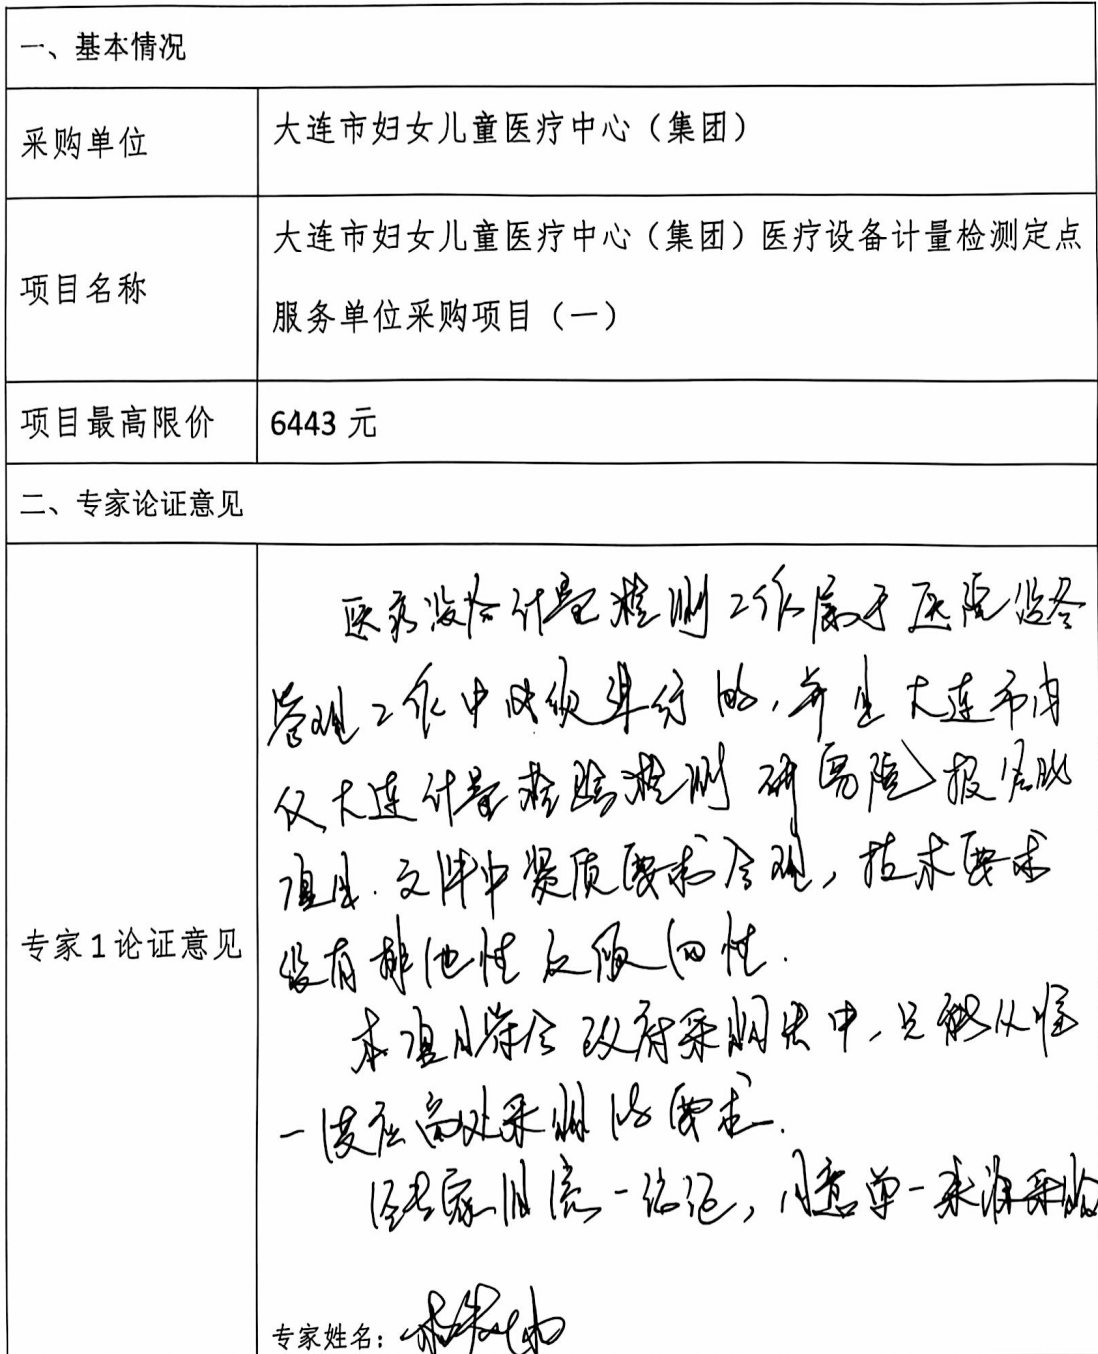 一、基本情况
采购单位
大连市妇女儿童医疗中心（集团）
项目名称
大连市妇女儿童医疗中心（集团）医疗设备计量检测定点
服务单位采购项目（一）
项目最高限价
6443 元
二、专家论证意见
专家1论证意见
医疗设备计量检测工作属于医院设备
管理工作中必须进行的，并且大连市内
仅大连计量检验检测研究院
项目。文件中资质要求合理，技术要求
没有排他性及倾向性。
本项目符合政府采购法中，只能从唯
一供应商处采购的要求。
经专家论证，同意单一来源采购
专家姓名：